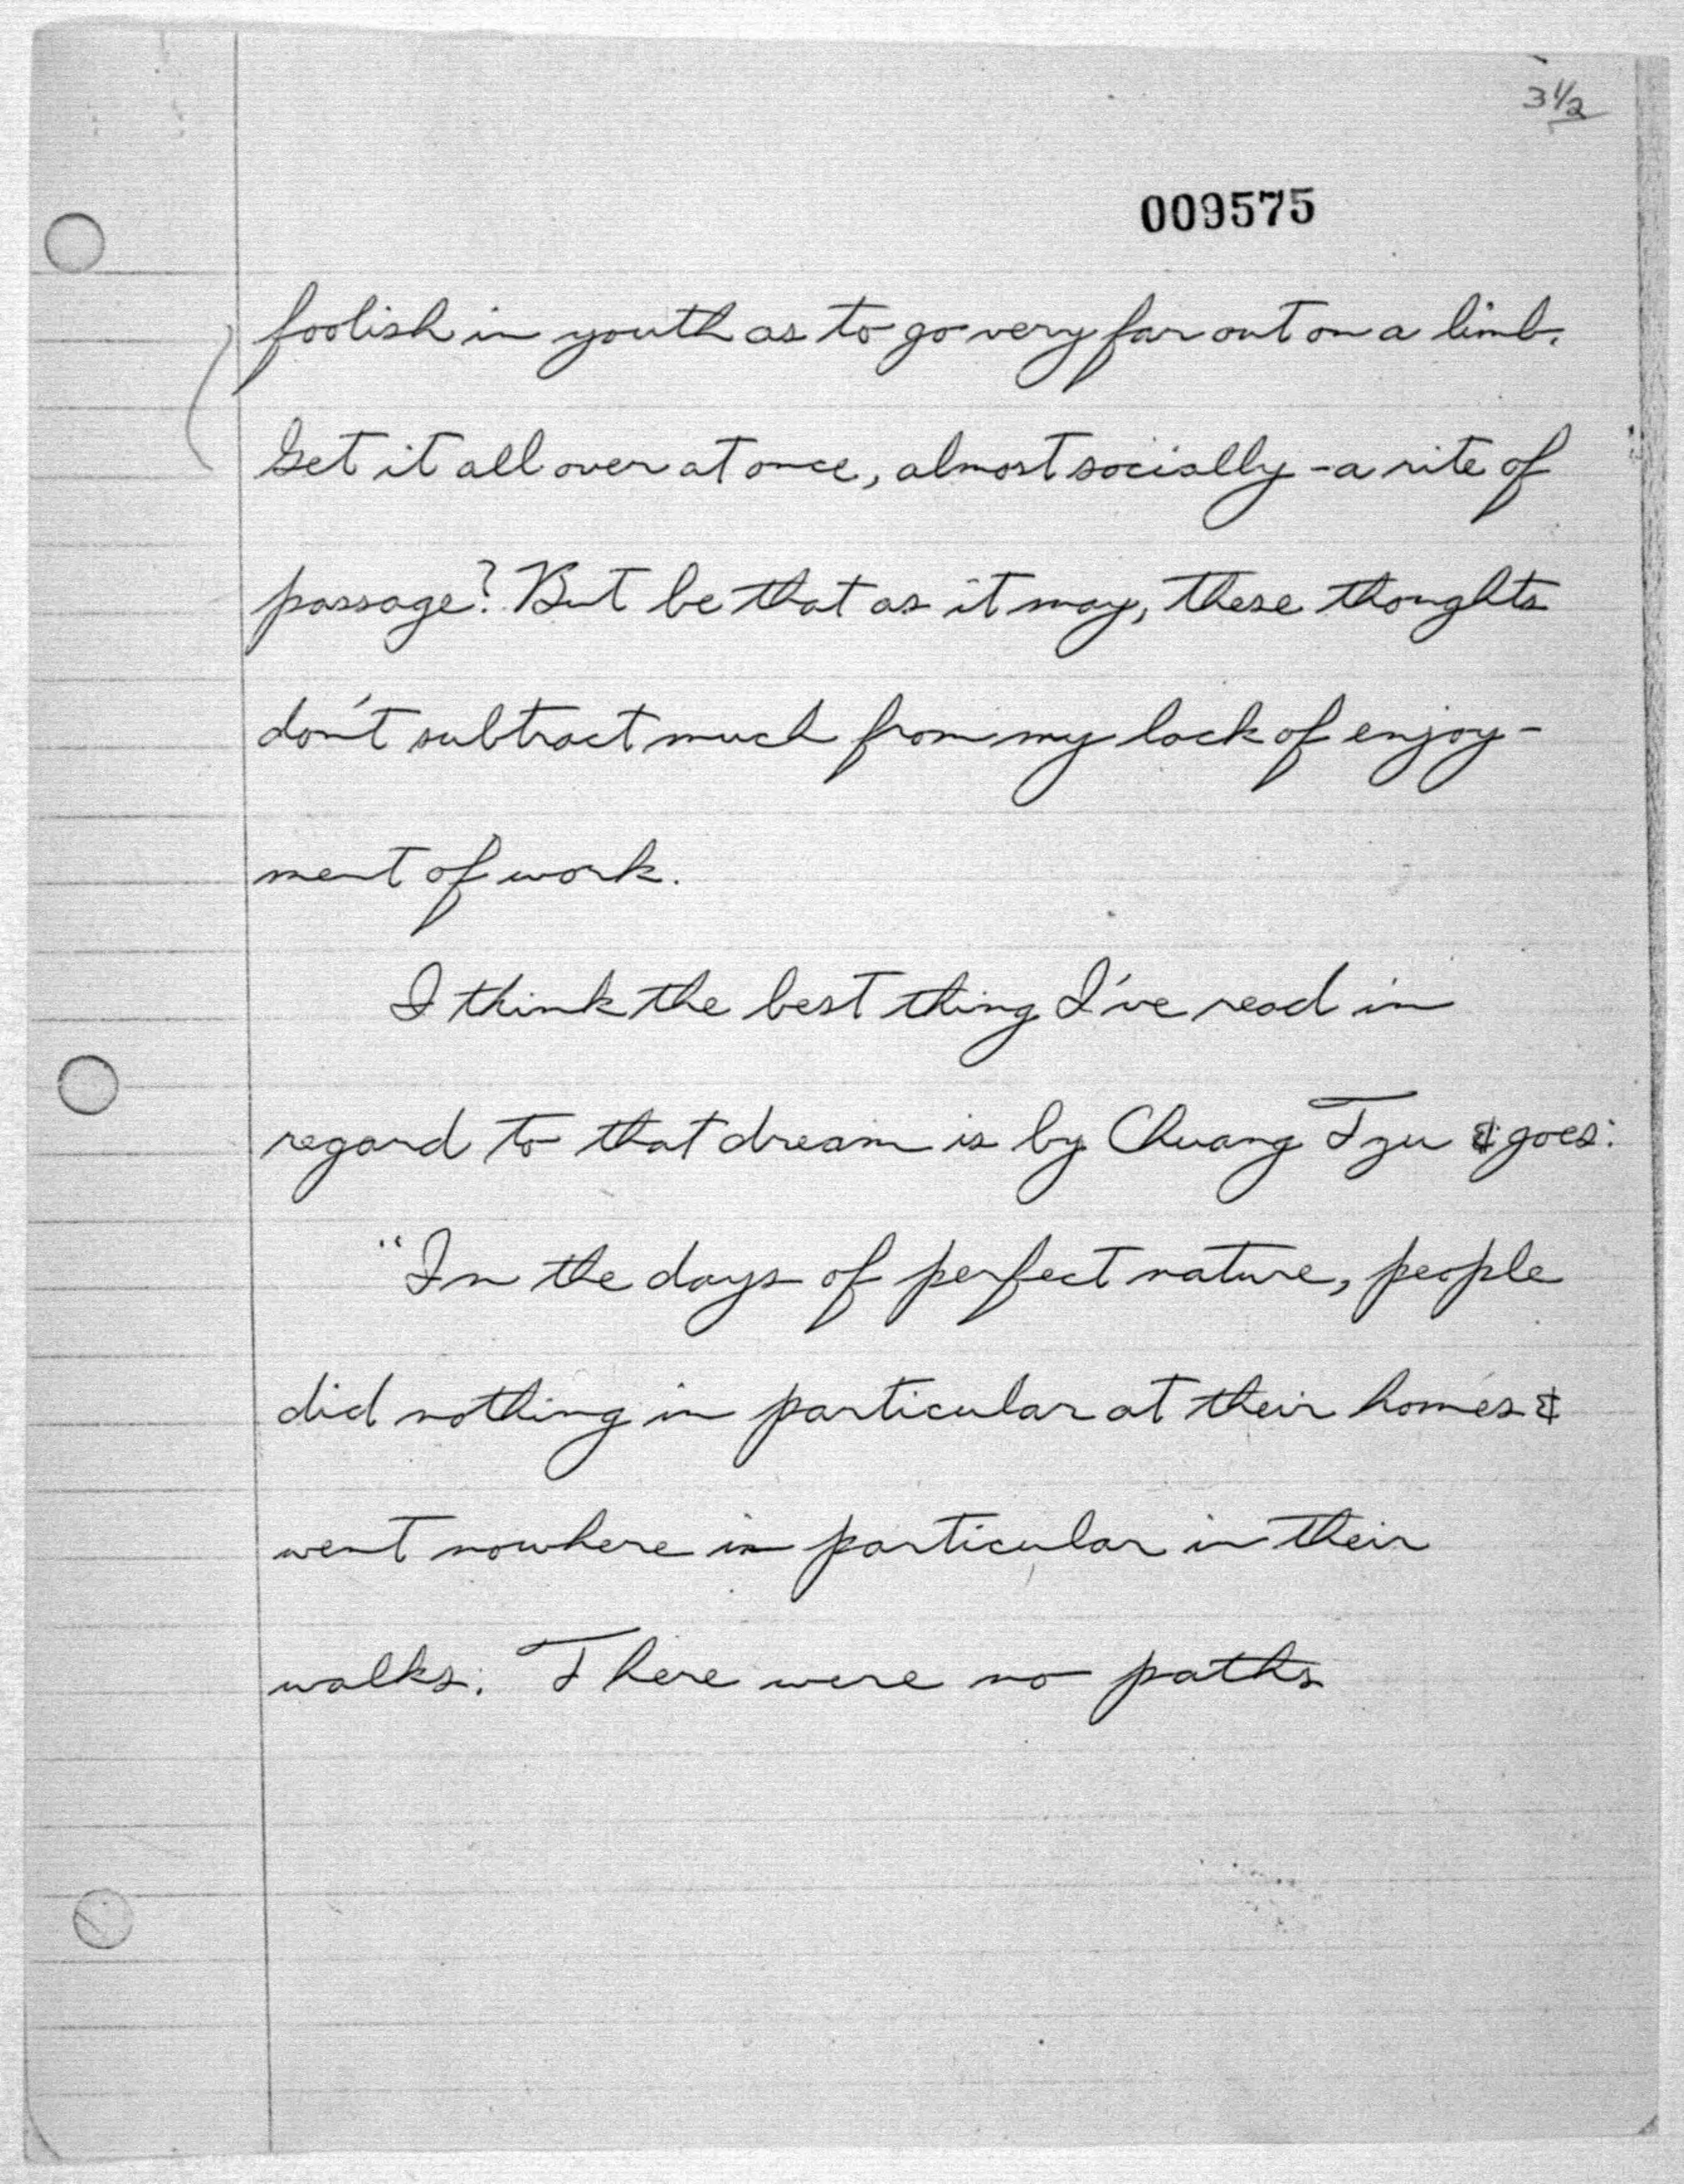 3 1/2
009575
foolish in youth as to go very far out on a limb.
Get it all over at once, almost socially - a rite of
passage? But be that as it may, these thoughts
don't subtract much from my lack of enjoy-
ment of work.
I think the best thing I've read in
regard to that dream is by Chuang Tzu & goes:
"In the days of perfect nature, people
did nothing in particular at their homes &
went nowhere in particular in their
walks. There were no paths